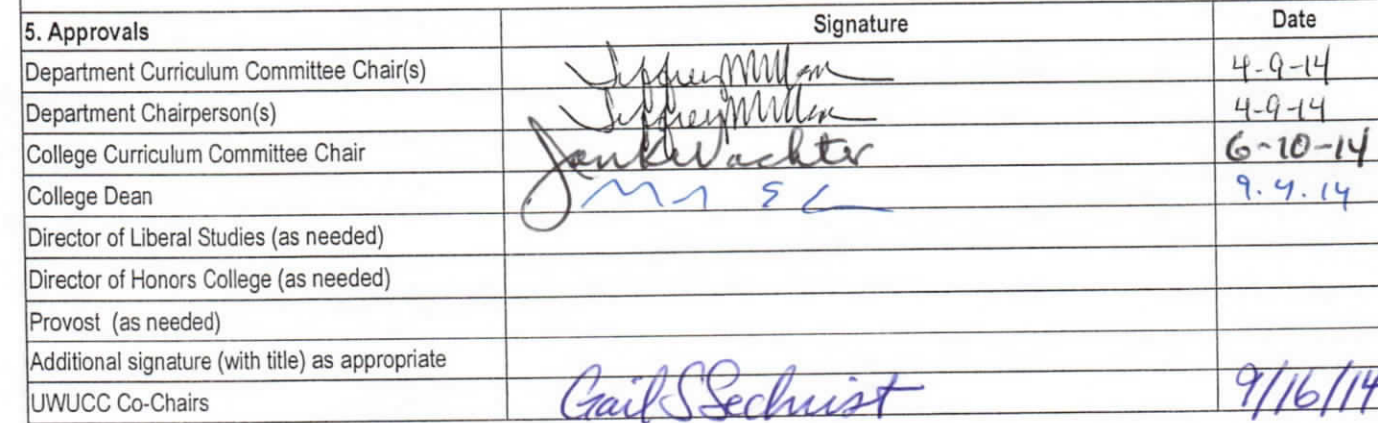 5. Approvals Signature Date
Department Curriculum Committee Chair(s) Jeffrey Miller 4-9-14
Department Chairperson(s) Jeffrey Miller 4-9-14
College Curriculum Committee Chair Jan K Wachter 6-10-14
College Dean 9.4.14
Director of Liberal Studies (as needed)
Director of Honors College (as needed)
Provost (as needed)
Additional signature (with title) as appropriate
UWUCC Co-Chairs Gail S Sechrist 9/16/14